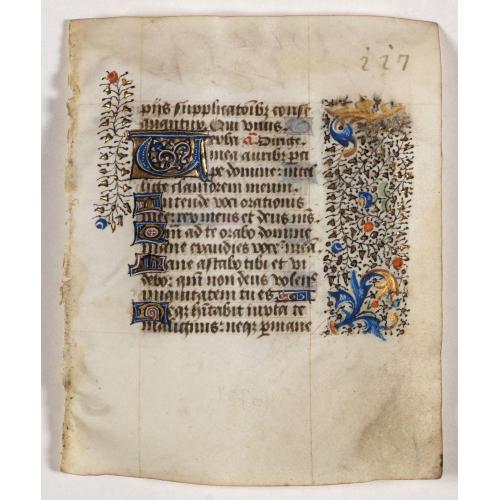 117
piis supplicatioibz conse
quantur. Qui viuis
Verba a Dirige.
mea auribz pci
pe domine: intel
lige clamorem meum.
Intende voci orationis
mee: rex meus et deus ms.
Qm ad te orabo domine
mane exaudies voce mea
Mane astabo tibi et vi
debo: qm non deus volens
iniquitatem tu es
Neqz hitabit iuxta te
malignus: neqz permane